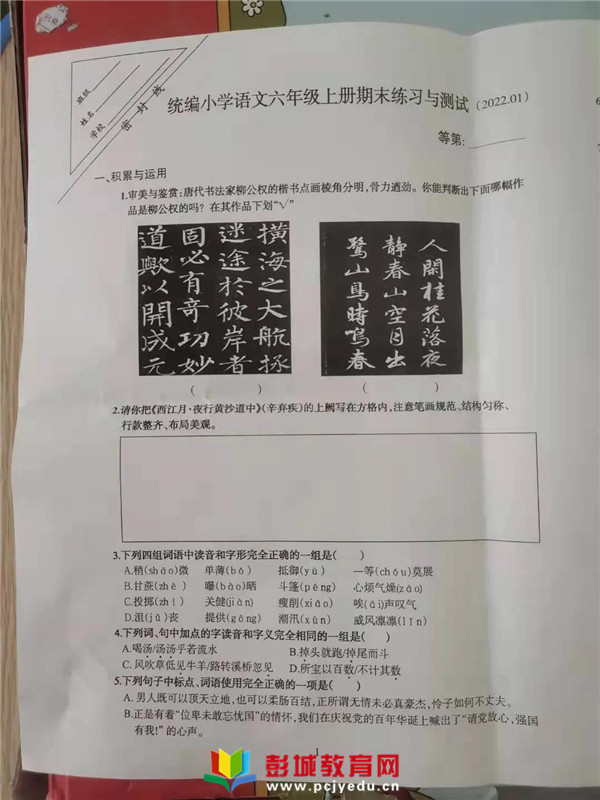 班级
姓名
学校
密封线
统编小学语文六年级上册期末练习与测试(2022.01)
等第:
一、积累与运用
1.审美与鉴赏:唐代书法家柳公权的楷书点画棱角分明,骨力遒劲。你能判断出下面哪幅作
品是柳公权的吗? 在其作品下划“√”
横海之大航拯
迷途於彼岸者
固必有奇功妙
道歟以開成元
人閒桂花落夜
静春山空月出
驚山鳥時鳴春
( ) ( )
2.请你把《西江月·夜行黄沙道中》(辛弃疾)的上阙写在方格内,注意笔画规范、结构匀称、
行款整齐、布局美观。
3.下列四组词语中读音和字形完全正确的一组是( )
A.稍(shāo)微 单薄(bó) 抵御(yù) 一等(chóu)莫展
B.甘蔗(zhè) 曝(bào)晒 斗篷(péng) 心烦气燥(zào)
C.投掷(zhì) 关健(jiàn) 瘦削(xiāo) 唉(āi)声叹气
D.沮(jǔ)丧 提供(gōng) 潮汛(xùn) 威风凛凛(lǐn)
4.下列词、句中加点的字读音和字义完全相同的一组是( )
A.喝汤/汤汤乎若流水 B.掉头就跑/掉尾而斗
C.风吹草低见牛羊/路转溪桥忽见 D.所宝以百数/不计其数
5.下列句子中标点、词语使用完全正确的一项是( )
A.男人既可以顶天立地,也可以柔肠百结,正所谓无情未必真豪杰,怜子如何不丈夫。
B.正是有着“位卑未敢忘忧国”的情怀,我们在庆祝党的百年华诞上喊出了“请党放心,强国
有我!”的心声。
1
彭城教育网
www.pcjyedu.cn